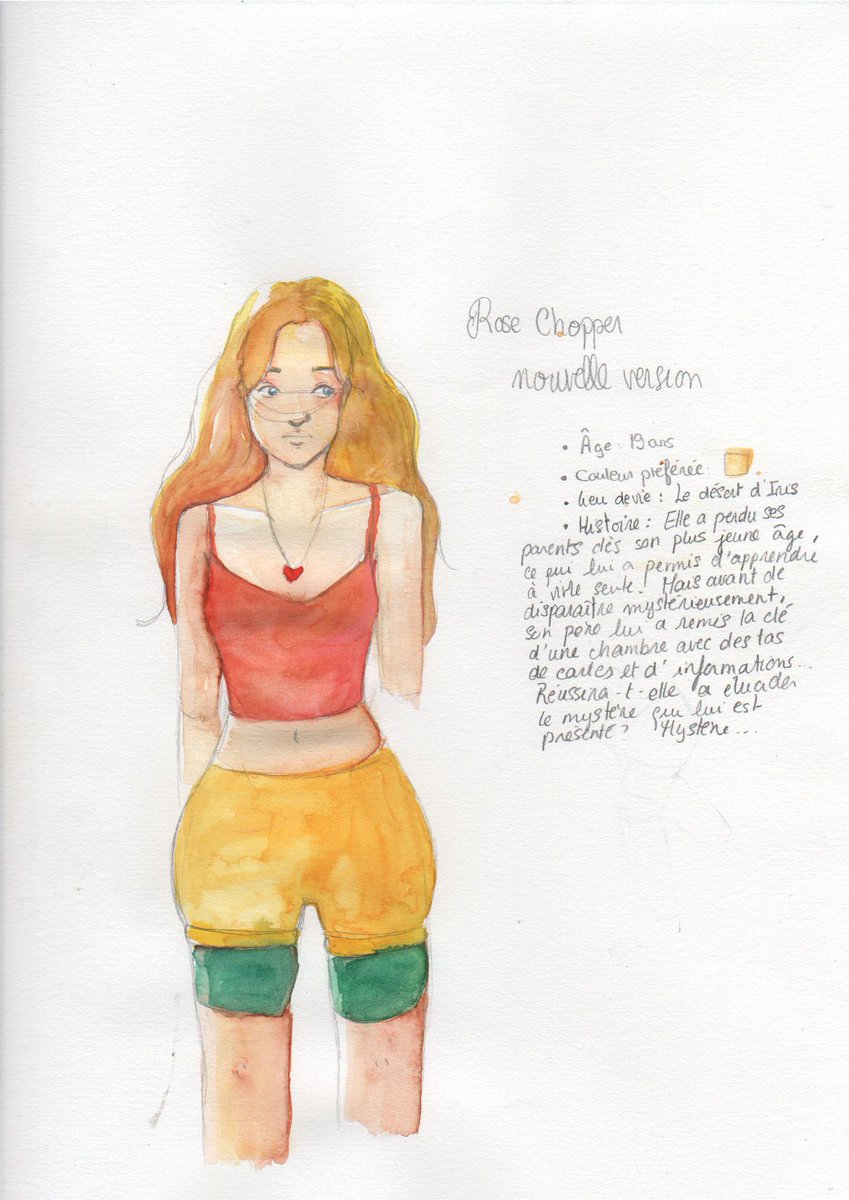 Rose Chopper
nouvelle version
• Âge : 19 ans
• Couleur préférée :
• Lieu de vie : Le désert d'Iris
• Histoire : Elle a perdu ses
parents dès son plus jeune âge,
ce qui lui a permis d'apprendre
à vivre seule. Mais avant de
disparaître mystérieusement,
son père lui a remis la clé
d'une chambre avec des tas
de cartes et d'informations...
Réussira-t-elle a élucider
le mystère qui lui est
présenté ? Mystère...